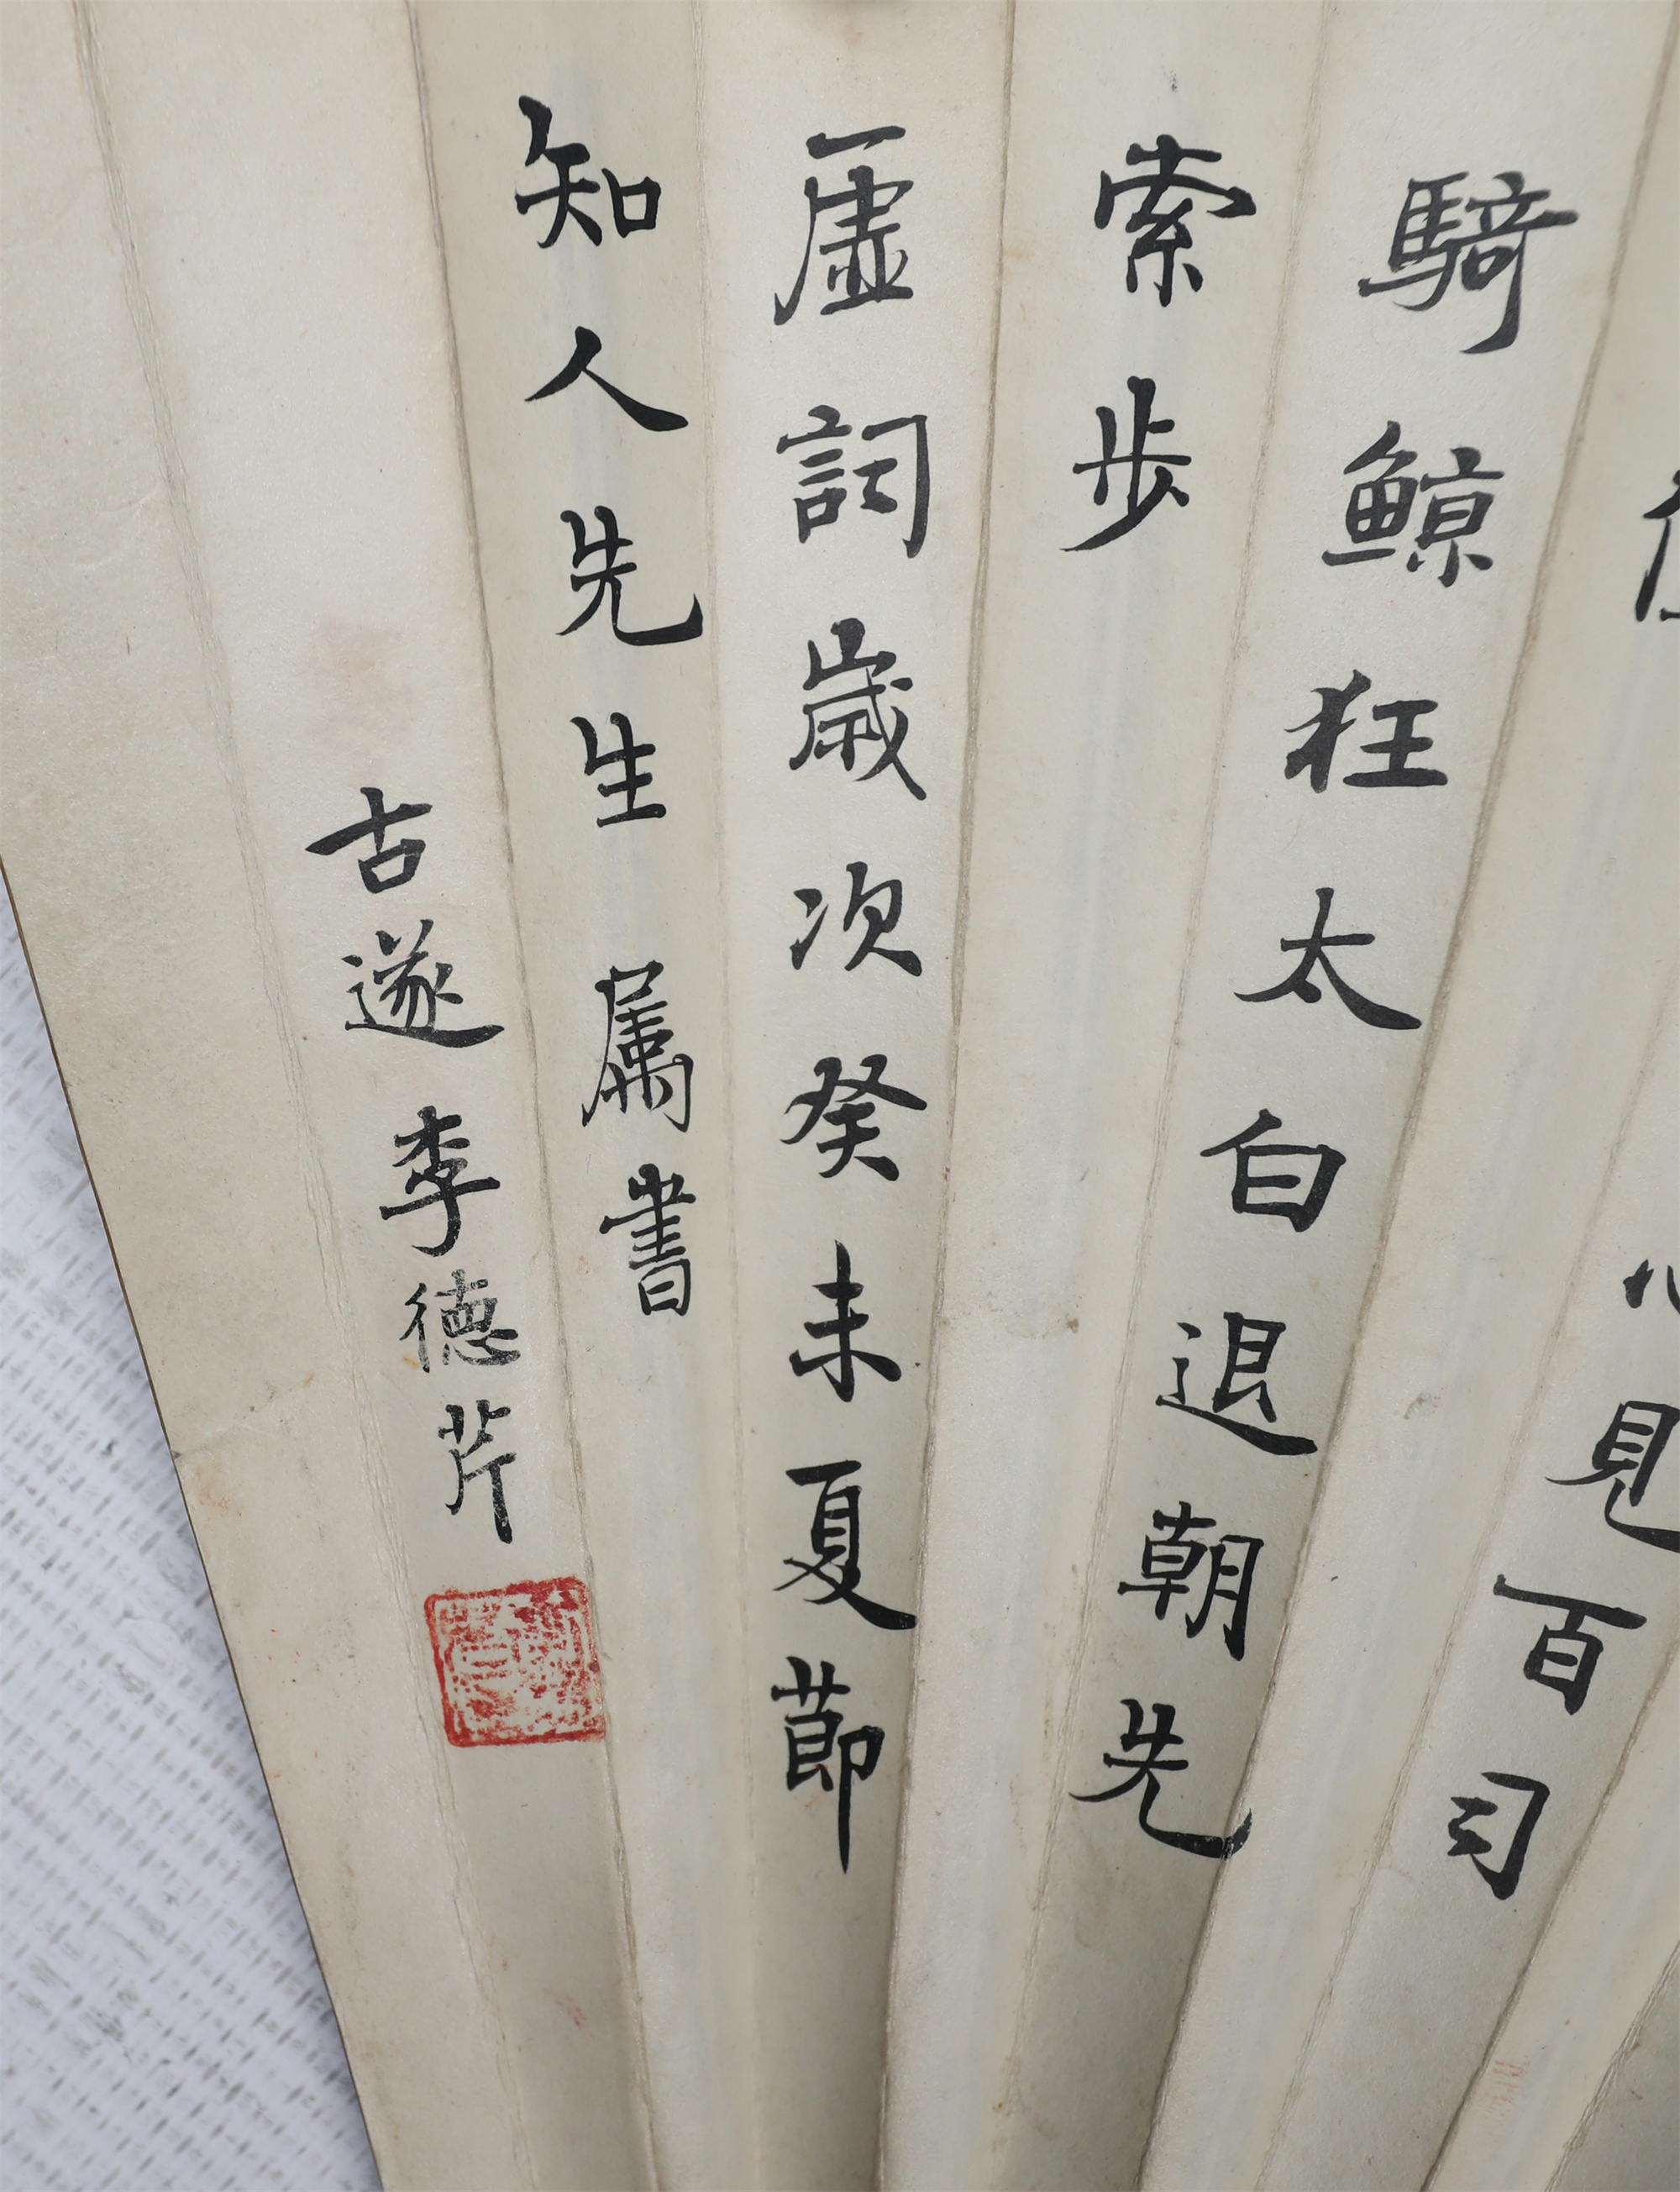 見百司
騎鯨狂太白退朝先
索步
虛詞歲次癸未夏節
知人先生属書
古遂李德芹